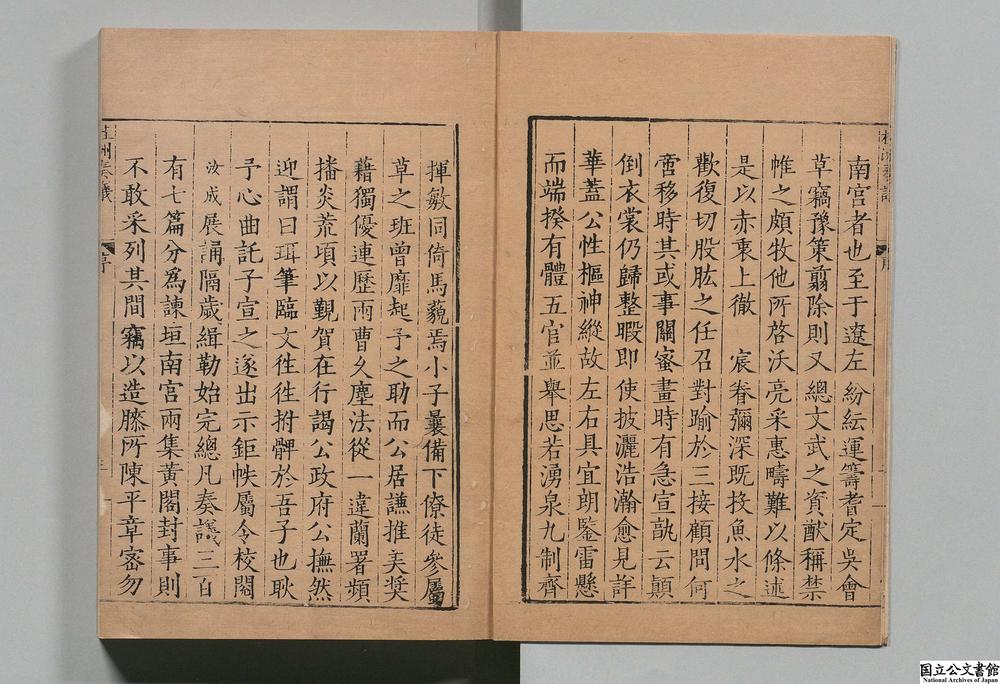 南宮者也至于遼左紛紜運籌耆定吳會
草竊豫策翦除則又總文武之資猷稱禁
帷之頗牧他所啓沃亮采惠疇難以條述
是以赤衷上徹　宸眷彌深既投魚水之
歡復切股肱之任召對踰於三接顧問何
啻移時其或事關蜜畫時有急宣孰云顛
倒衣裳仍歸整暇即使披灑浩瀚愈見詳
華蓋公性樞神縱故左右具宜朗鑒雷懸
而端揆有體五官並舉思若湧泉九制齊
揮敏同倚馬藐焉小子曩備下僚徒參屬
草之班曾靡起予之助而公居謙推美奖
藉獨優連歷兩曹久塵法從一違蘭署頻
播炎荒頃以覲賀在行謁公政府公撫然
迎謂曰珥筆臨文徃徃拊髀於吾子也耿
予心曲託子宣之遂出示鉅帙屬令校閱
汝成展誦隔歲緝勒始完總凡奏議三百
有七篇分爲諫垣南宮兩集黃閣封事則
不敢采列其間竊以造膝所陳平章密勿
桂洲奏議
序
国立公文書館
National Archives of Japan